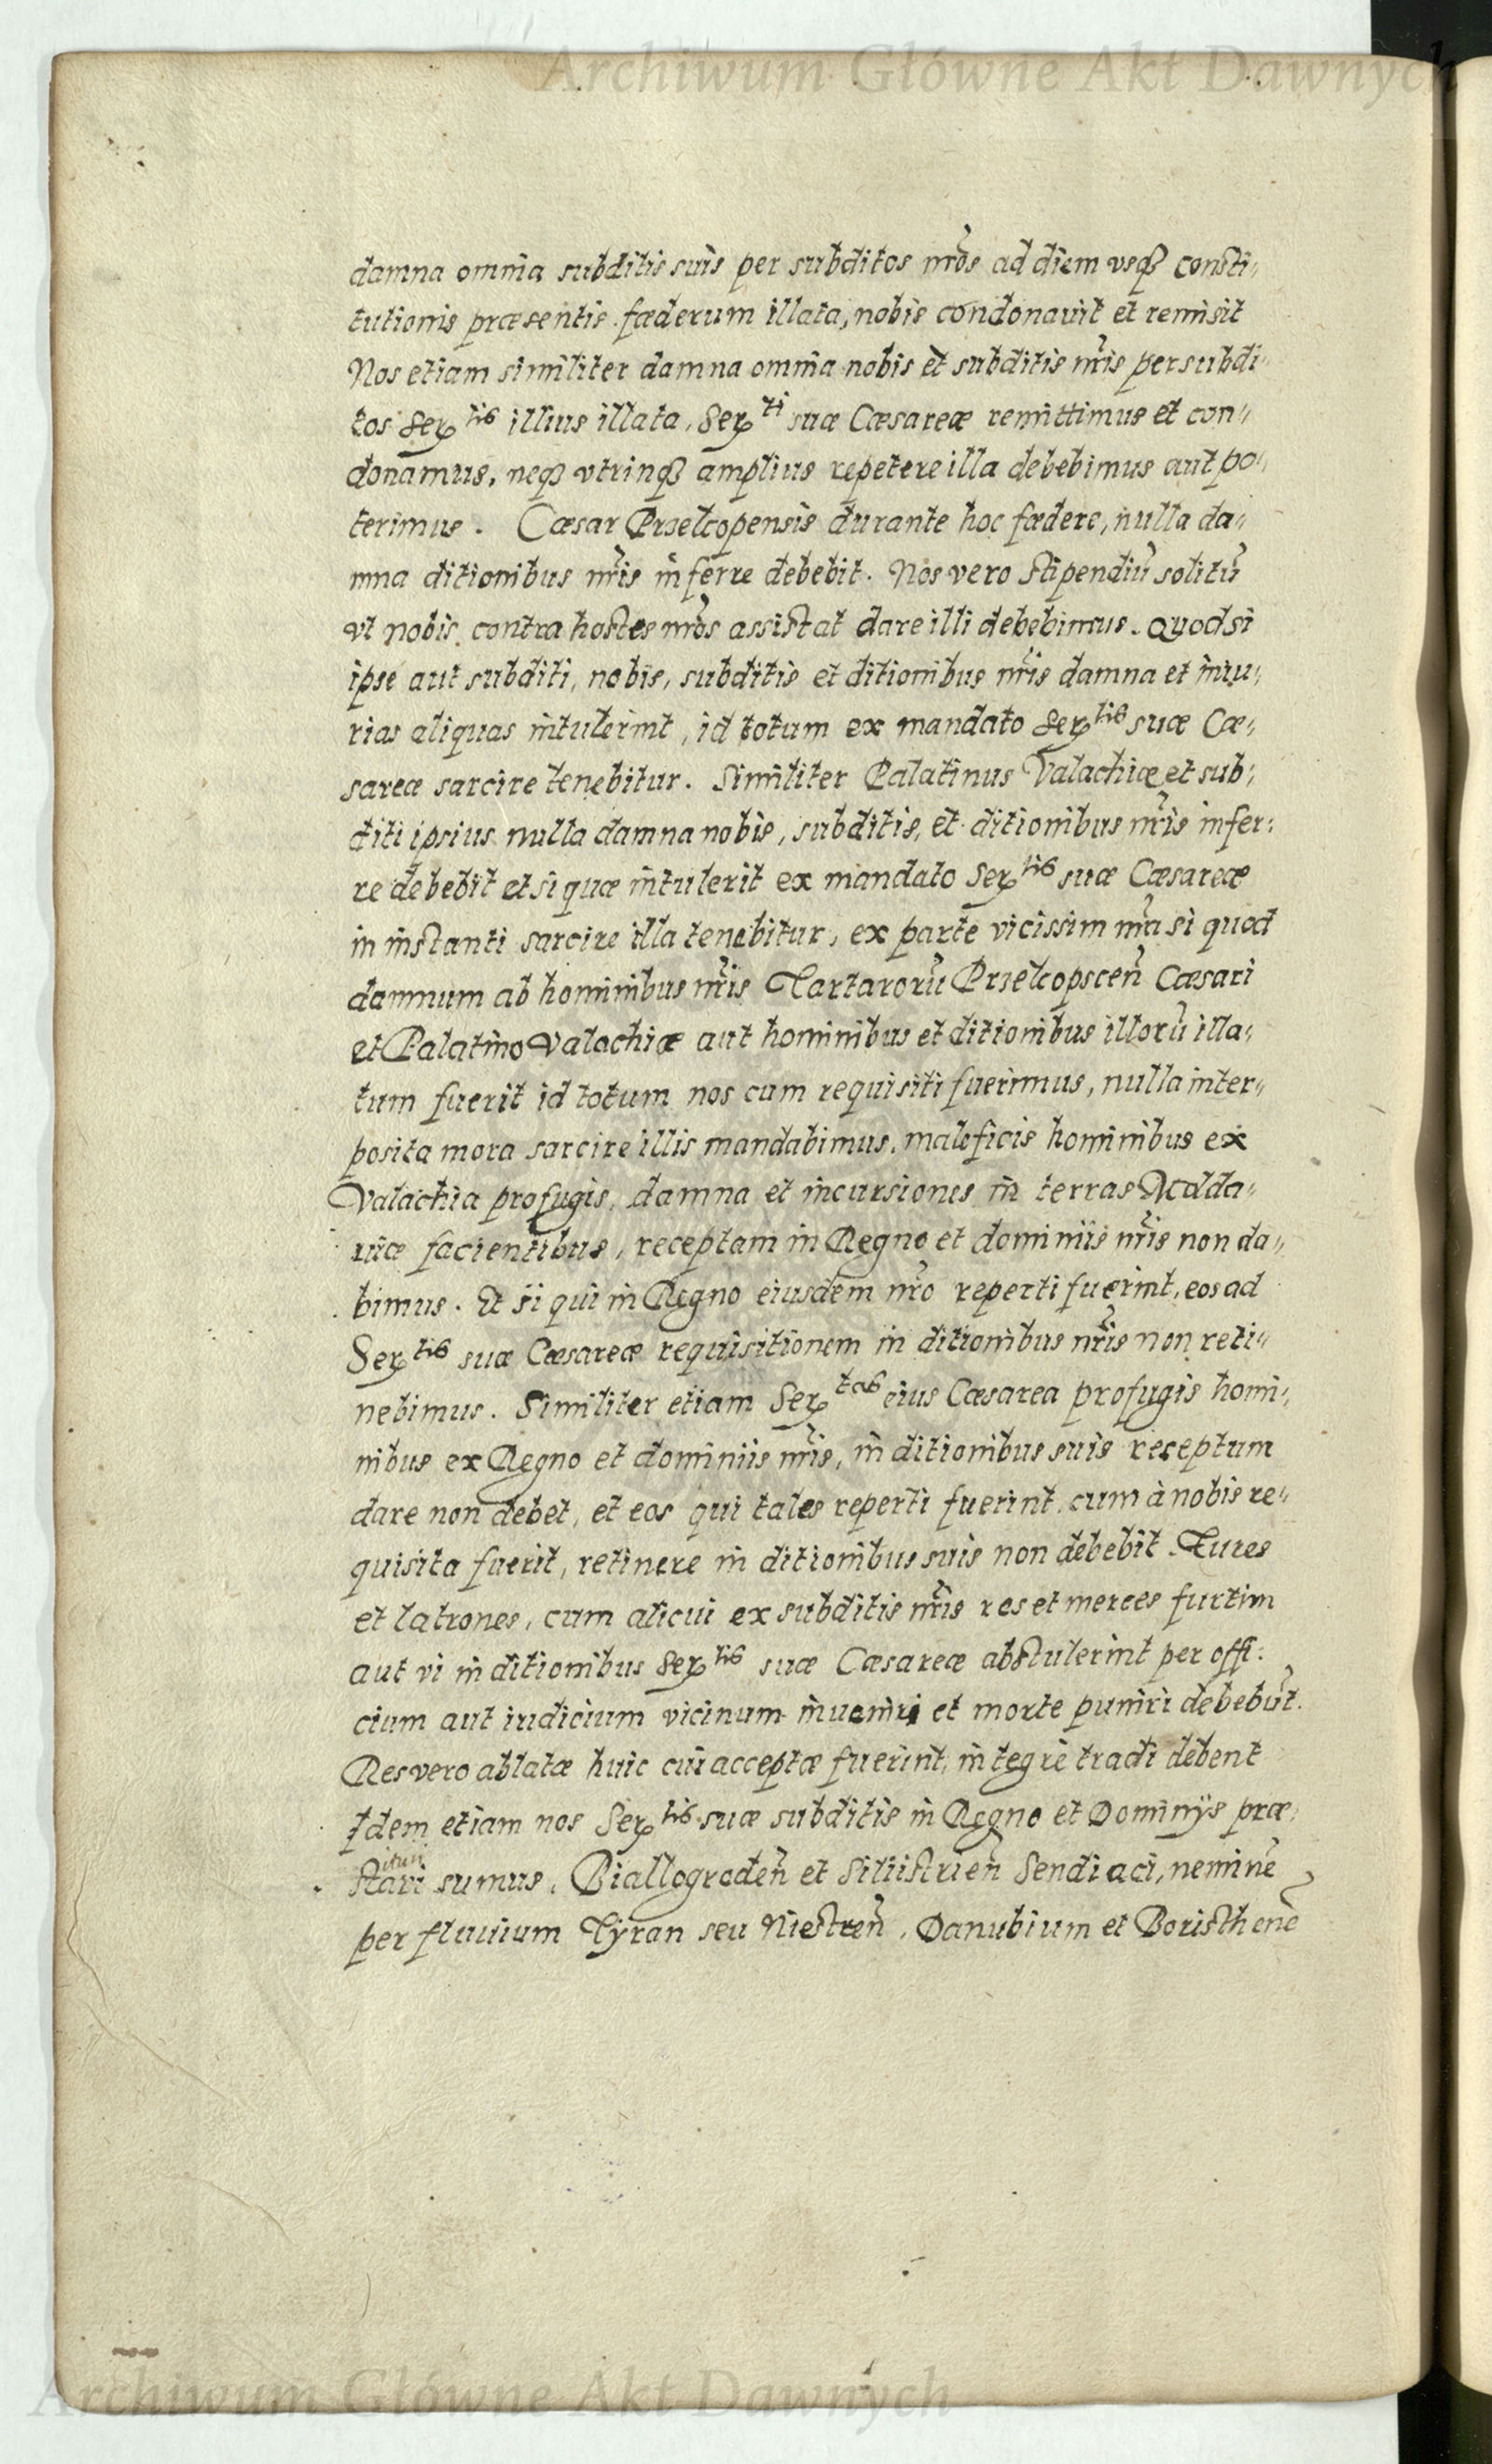 Archiwum Główne Akt Dawnych
damna omnia subditis suis per subditos nr̃os ad diem vsq̃ consti„
tutionis præsentis fœderum illata, nobis condonauit et remisit
Nos etiam similiter damna omnia nobis et subditis nr̃is per subdi„
tos Ser^tis illius illata, Ser^ti suæ Cæsareæ remittimus et con„
donamus, neq̃ vtrinq̃ amplius repetere illa debebimus aut po„
terimus. Cæsar Przekopensis durante hoc fœdere, nulla da„
mna ditionibus nr̃is inferre debebit. Nos vero stipendiũ solitũ
vt nobis contra hostes nr̃os assistat dare illi debebimus. Quodsi
ipse aut subditi, nobis, subditis et ditionibus nr̃is damna et iniu„
rias aliquas intulerint, id totum ex mandato Ser^tis suæ Cæ„
sareæ sarcire tenebitur. Similiter Palatinus Valachiæ et sub„
diti ipsius nulla damna nobis, subditis, et ditionibus nr̃is infer„
re debebit et si quæ intulerit ex mandato Ser^tis suæ Cæsareæ
in instanti sarcire illa tenebitur, ex parte vicissim nr̃a si quod
damnum ab hominibus nr̃is Tartarorũ Przekopscen̄ Cæsari
et Palatino Valachiæ aut hominibus et ditionibus illorũ illa„
tum fuerit id totum nos cum requisiti fuerimus, nulla inter„
posita mora sarcire illis mandabimus, maleficis hominibus ex
Valachia profugis, damna et incursiones in terras Molda„
uiæ facientibus, receptam in Regno et dominiis nr̃is non da„
bimus. Et si qui in Regno eiusdem nr̃o reperti fuerint, eos ad
Ser^tis suæ Cæsareæ requisitionem in ditionibus nr̃is non reti„
nebimus. Similiter etiam Ser^tas eius Cæsarea profugis homi„
nibus ex Regno et dominiis nr̃is, in ditionibus suis receptum
dare non debet, et eos qui tales reperti fuerint, cum à nobis re„
quisita fuerit, retinere in ditionibus suis non debebit. Fures
et latrones, cum alicui ex subditis nr̃is res et merces furtim
aut vi in ditionibus Ser^tis suæ Cæsareæ abstulerint per offi:
cium aut iudicium vicinum inueniri et morte puniri debebũt.
Res vero ablatæ huic cui acceptæ fuerint, integrè tradi debent
Idem etiam nos Ser^tis suæ subditis in Regno et Dominÿs præ„
itur
stari sumus. Biallogroden̄ et Siliistrien̄ Sendiaci, neminẽ
per fluuium Tÿran seu Niestren̄, Danubium et Boristhenẽ
Archiwum Główne Akt Dawnych